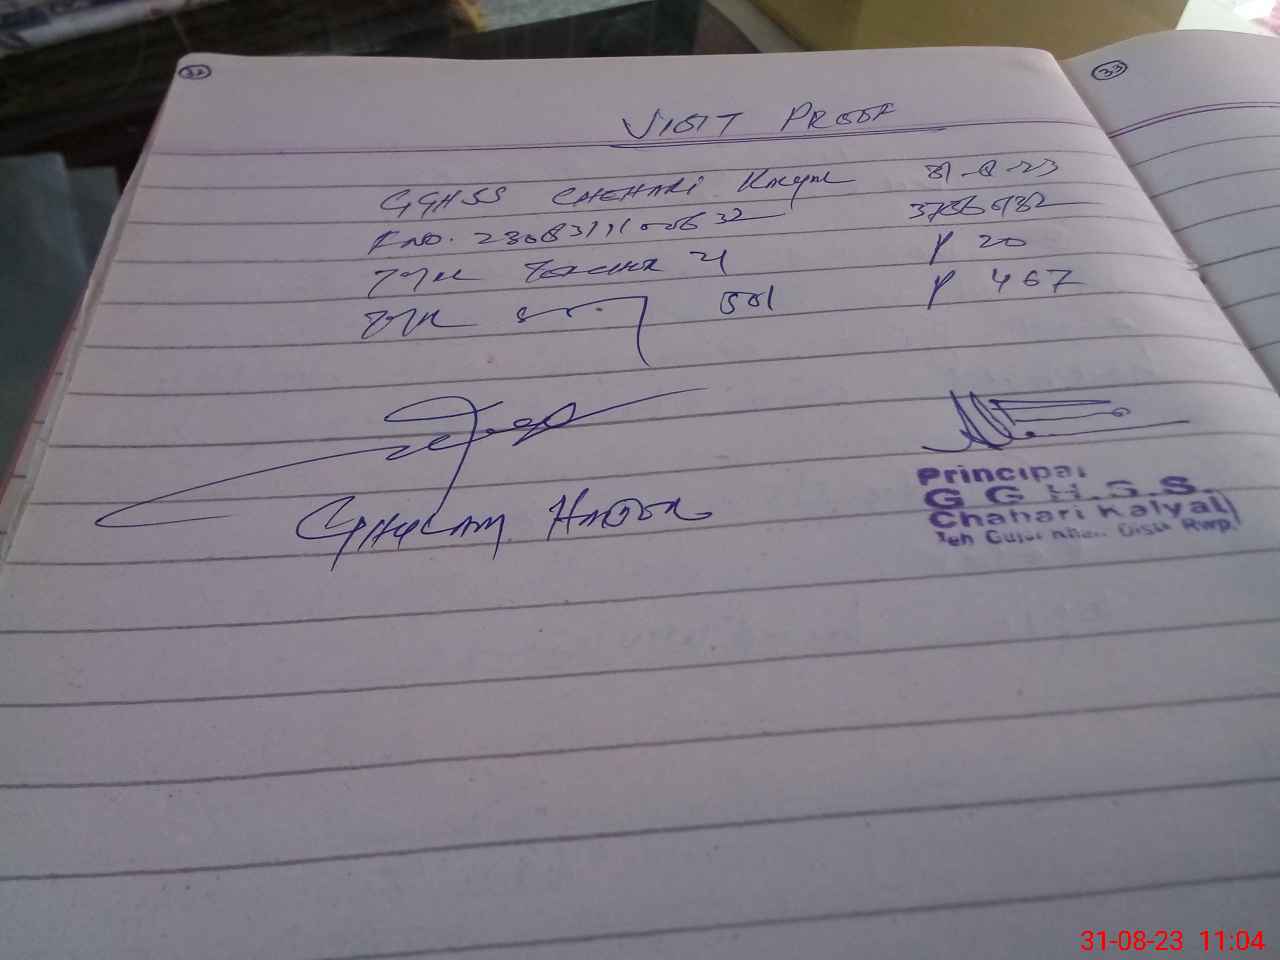 32
33
VISIT PROOF
GGHSS CHEHARI Kalyal 31-8-23
F NO. 37330132
Total Teacher 21 P 20
Total 501 P 467
GHULAM HAIDER
Principal
G G H.S.S.
Chahari Kalyal
Teh Gujar Khan Distt Rwp.
31-08-23 11:04